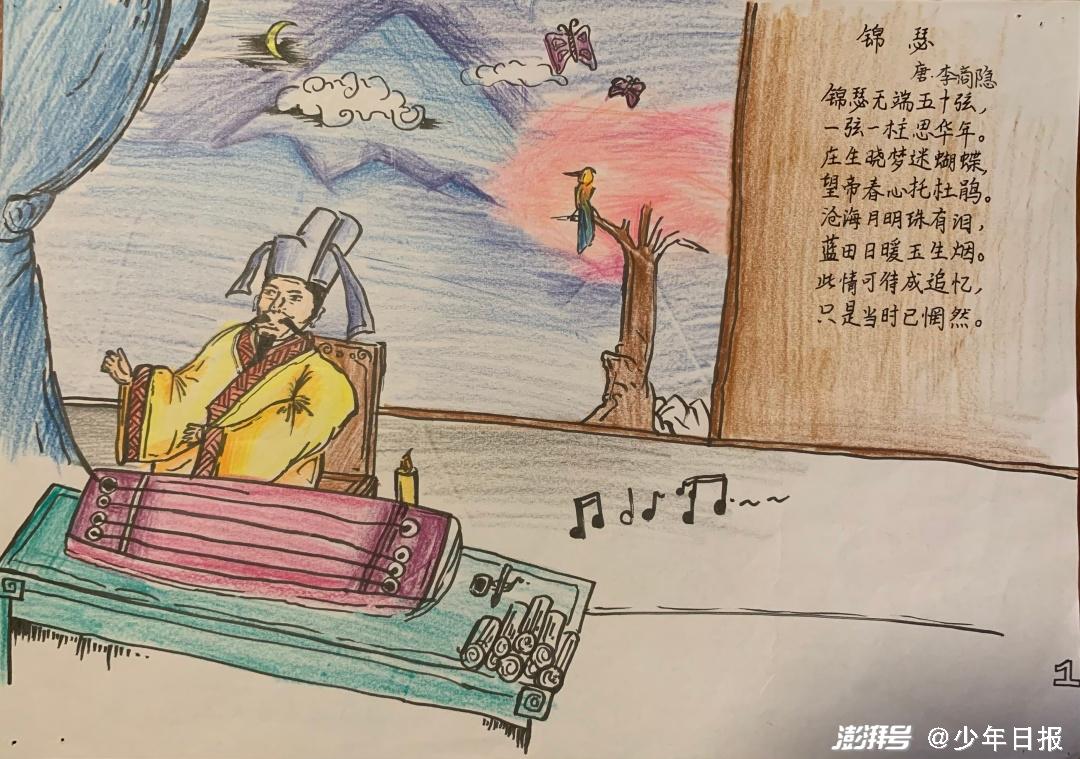 锦瑟
唐·李商隐
锦瑟无端五十弦，
一弦一柱思华年。
庄生晓梦迷蝴蝶，
望帝春心托杜鹃。
沧海月明珠有泪，
蓝田日暖玉生烟。
此情可待成追忆，
只是当时已惘然。
1
澎湃号 @少年日报